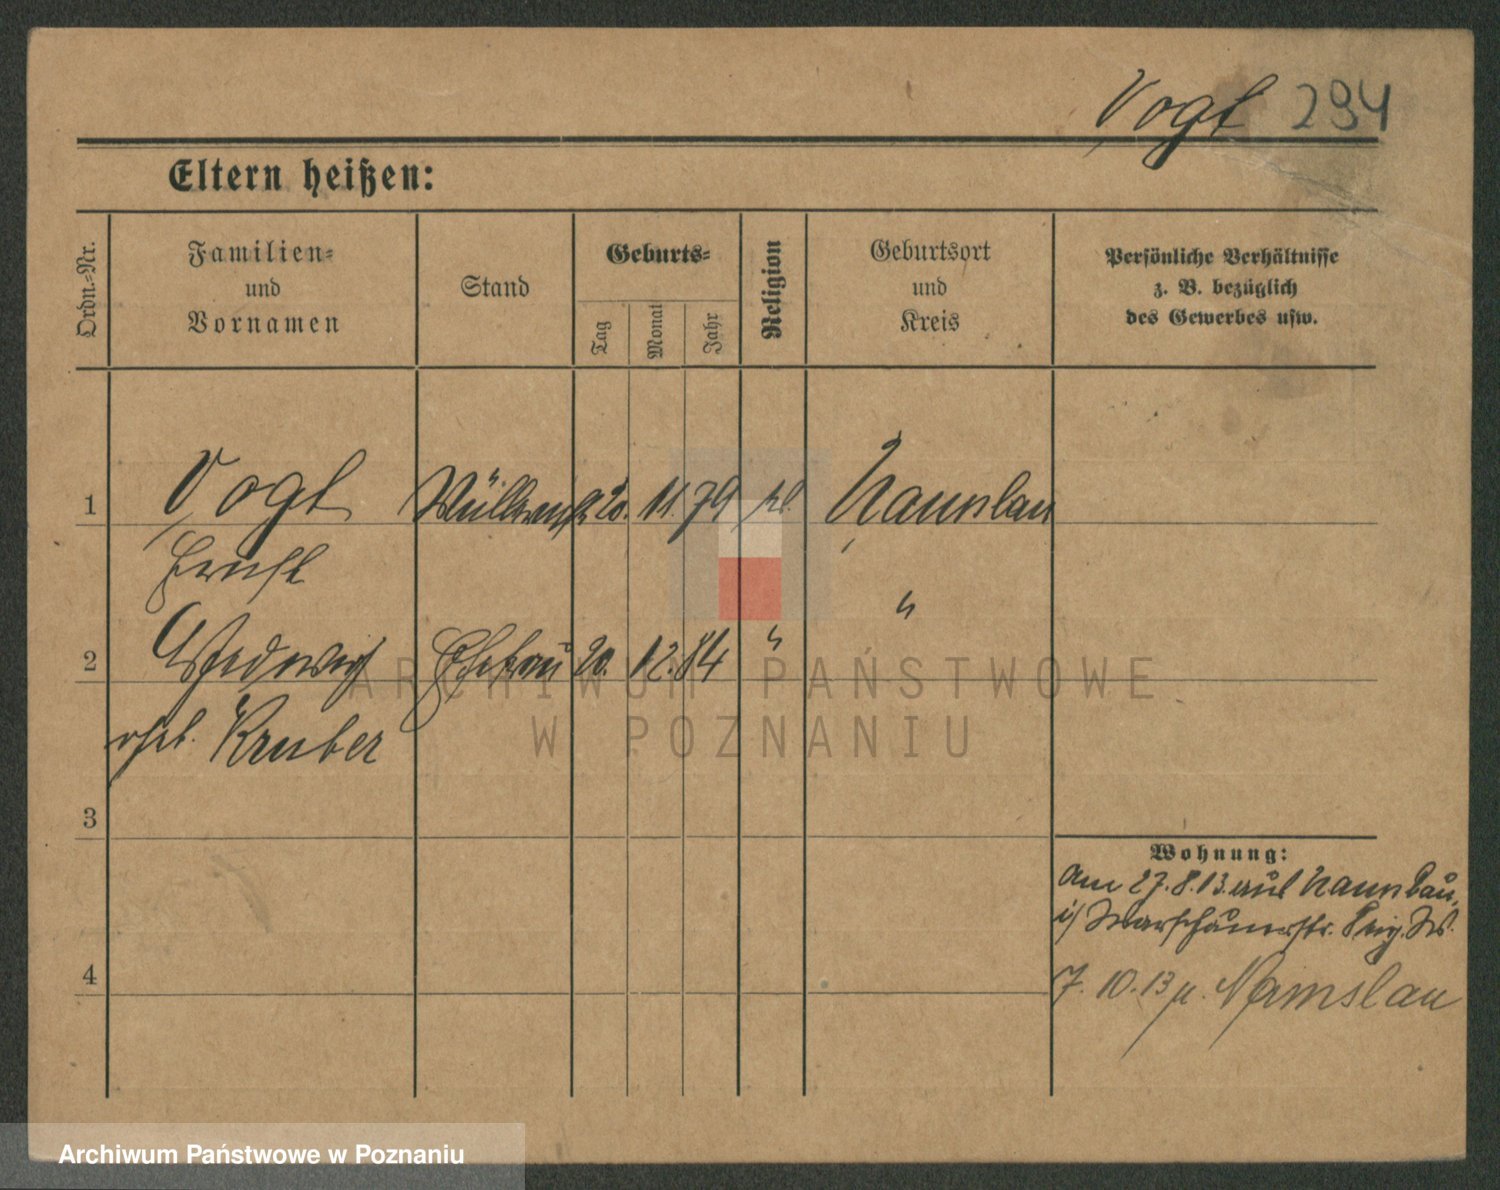 Vogt 294
Eltern heißen:
Ordn.-Nr.
Familien-
und
Vornamen
Stand
Geburts-
Tag
Monat
Jahr
Religion
Geburtsort
und
Kreis
Persönliche Verhältnisse
z. B. bezüglich
des Gewerbes usw.
1 Vogt 20. 11. 79 Namslau
Ernst
2 Hedwig Ehefrau 20. 12. 84 " "
geb. Kruber
3
4
Wohnung:
Am 27.8.13. aus Namslau,
7.10.13 n. Namslau
ARCHIWUM PAŃSTWOWE
W POZNANIU
Archiwum Państwowe w Poznaniu